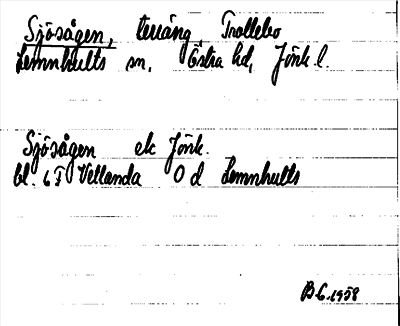 Sjösågen, terräng, Trollebo
Lemnhults sn, Östra hd, Jönk l.
Sjösågen ek Jönk.
bl. 6F Vetlanda 0 d Lemnhults
B G. 1958